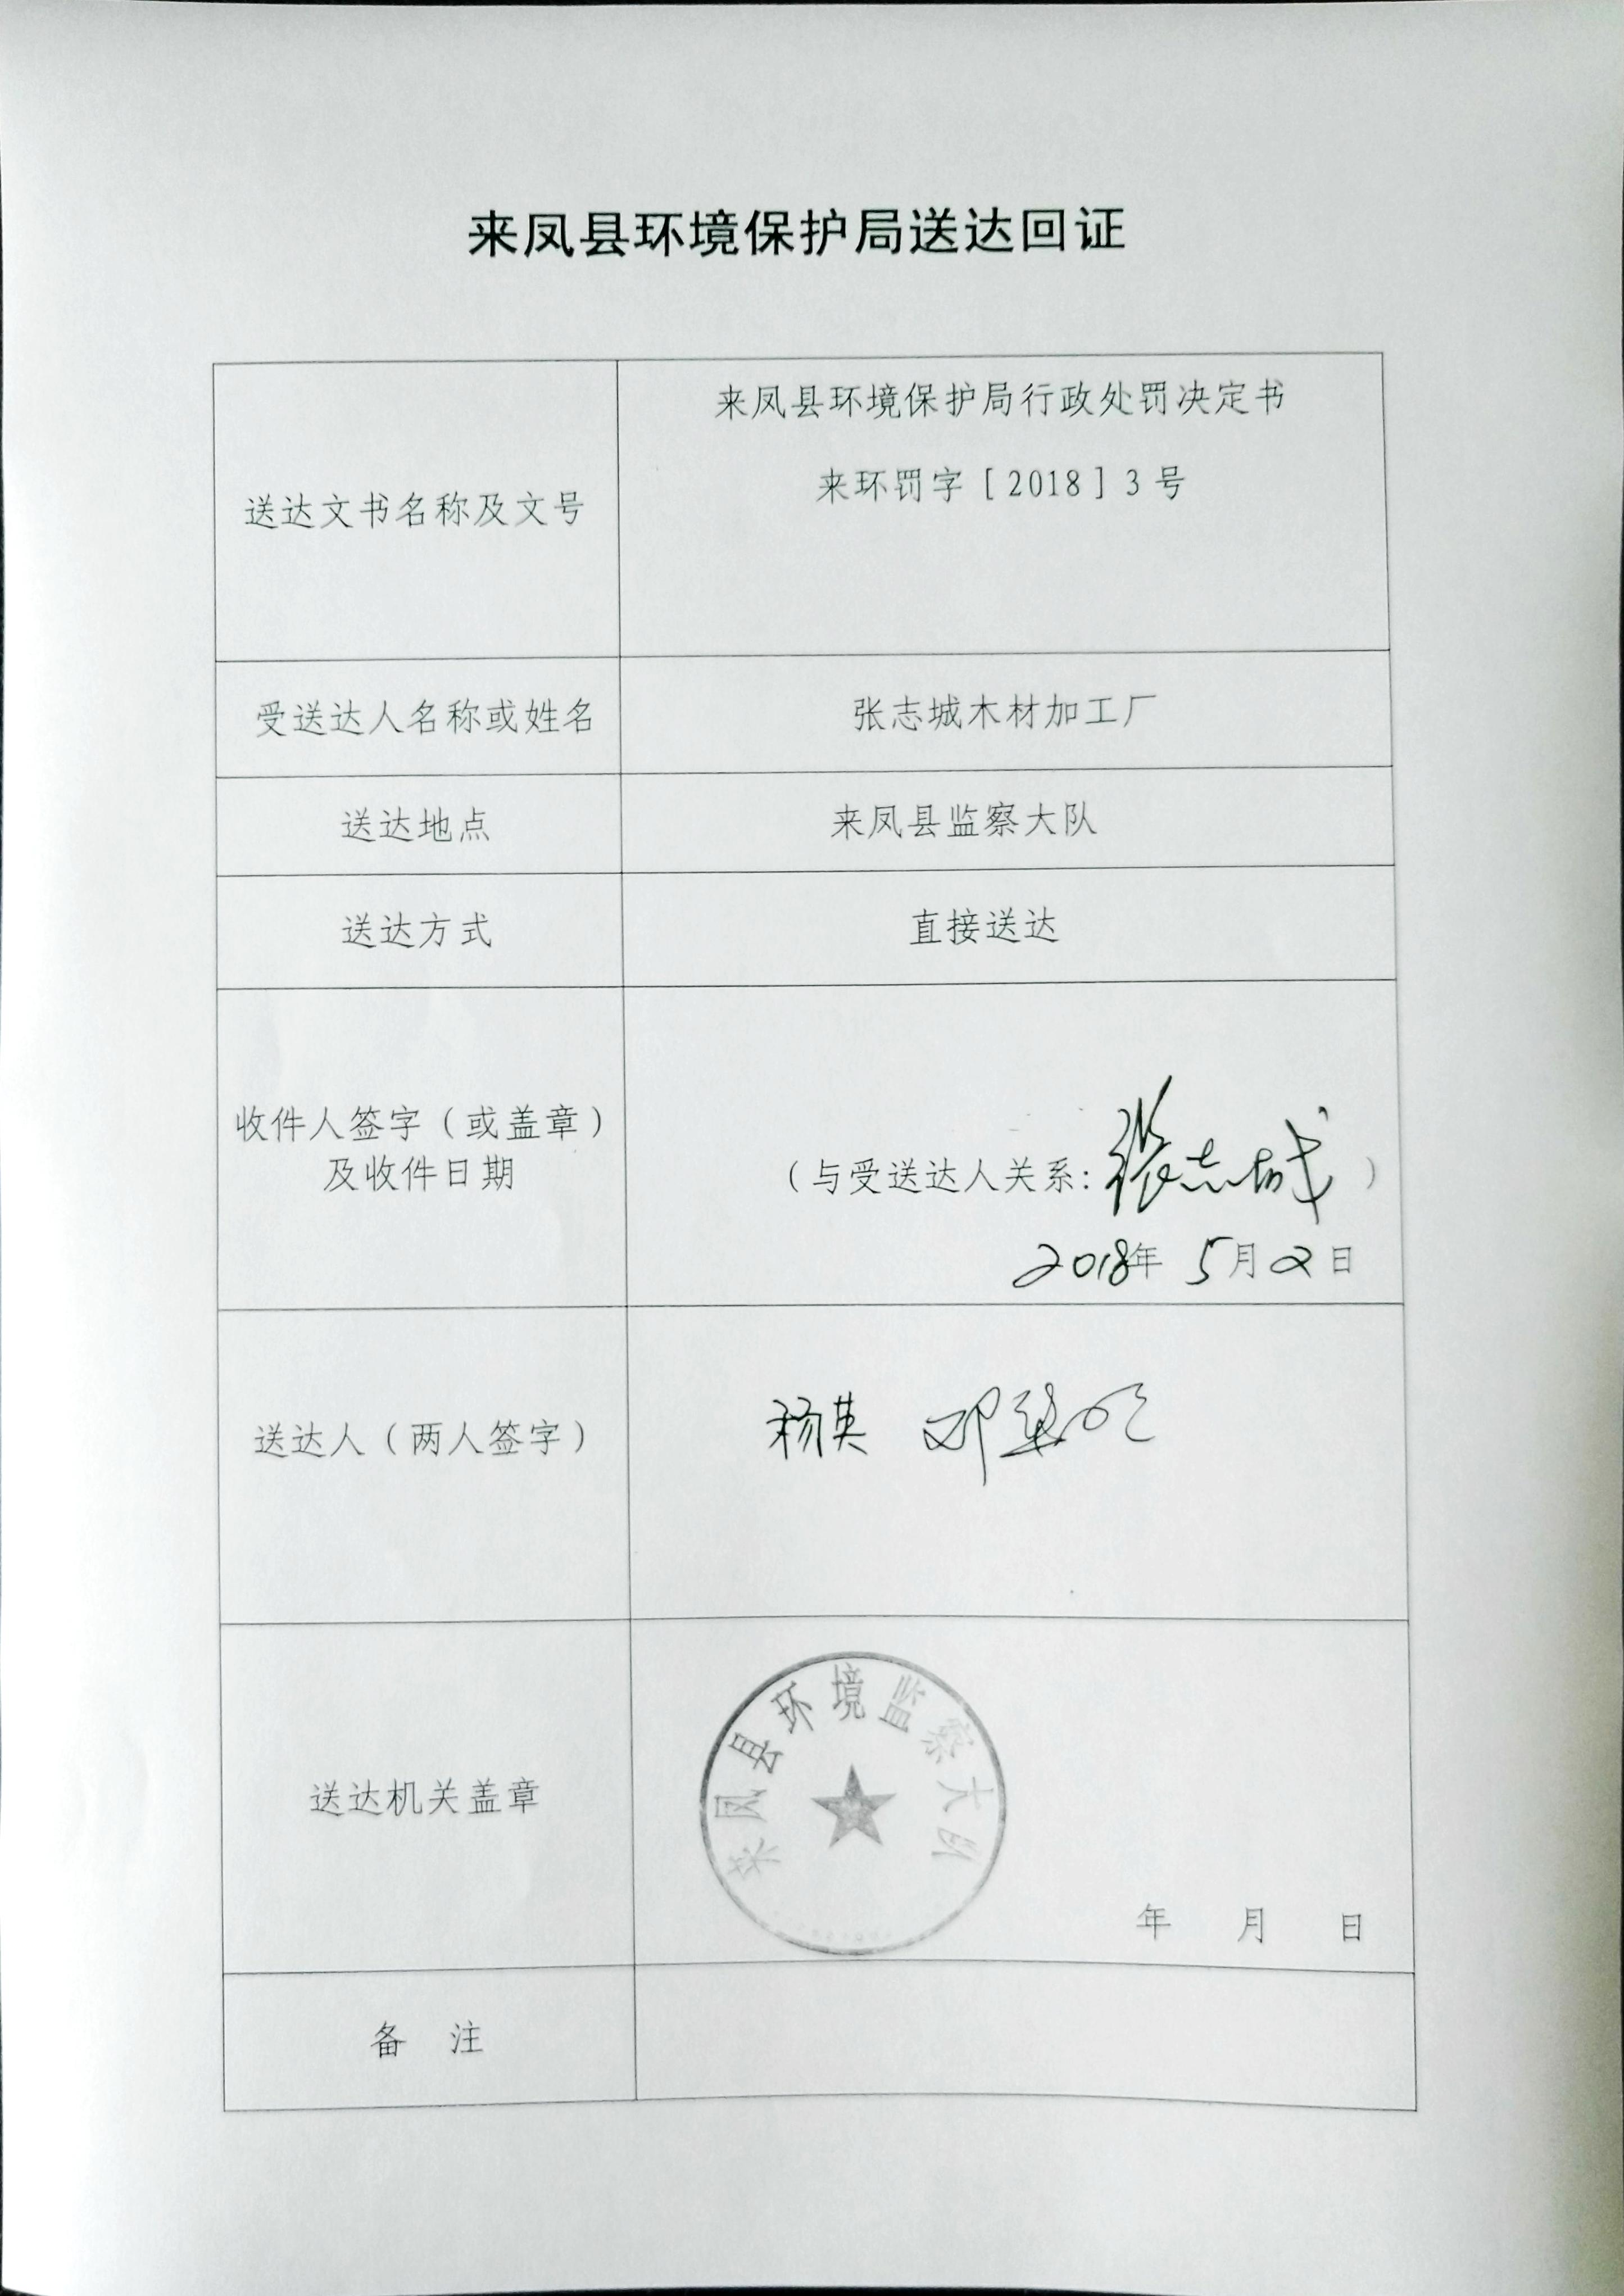 来凤县环境保护局送达回证
送达文书名称及文号
来凤县环境保护局行政处罚决定书
来环罚字［2018］3号
受送达人名称或姓名
张志城木材加工厂
送达地点
来凤县监察大队
送达方式
直接送达
收件人签字（或盖章）
及收件日期
（与受送达人关系：张志城）
2018年 5月2日
送达人（两人签字）
杨英 邓
送达机关盖章
来凤县环境监察大队
年 月 日
备 注